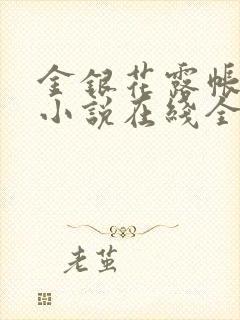 金银花露帐
小说在线全
老茧